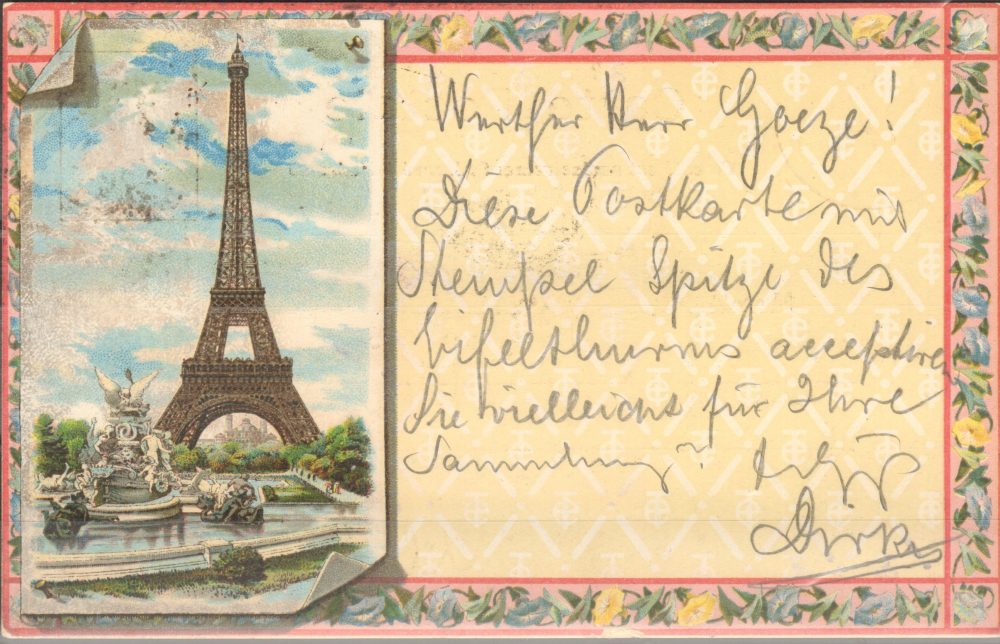 Werther Herr Goeze!
Diese Postkarte mit
Stempel Spitze des
Eifelthurms acceptiren
Sie vielleicht für Ihre
Sammlung?
Dirks